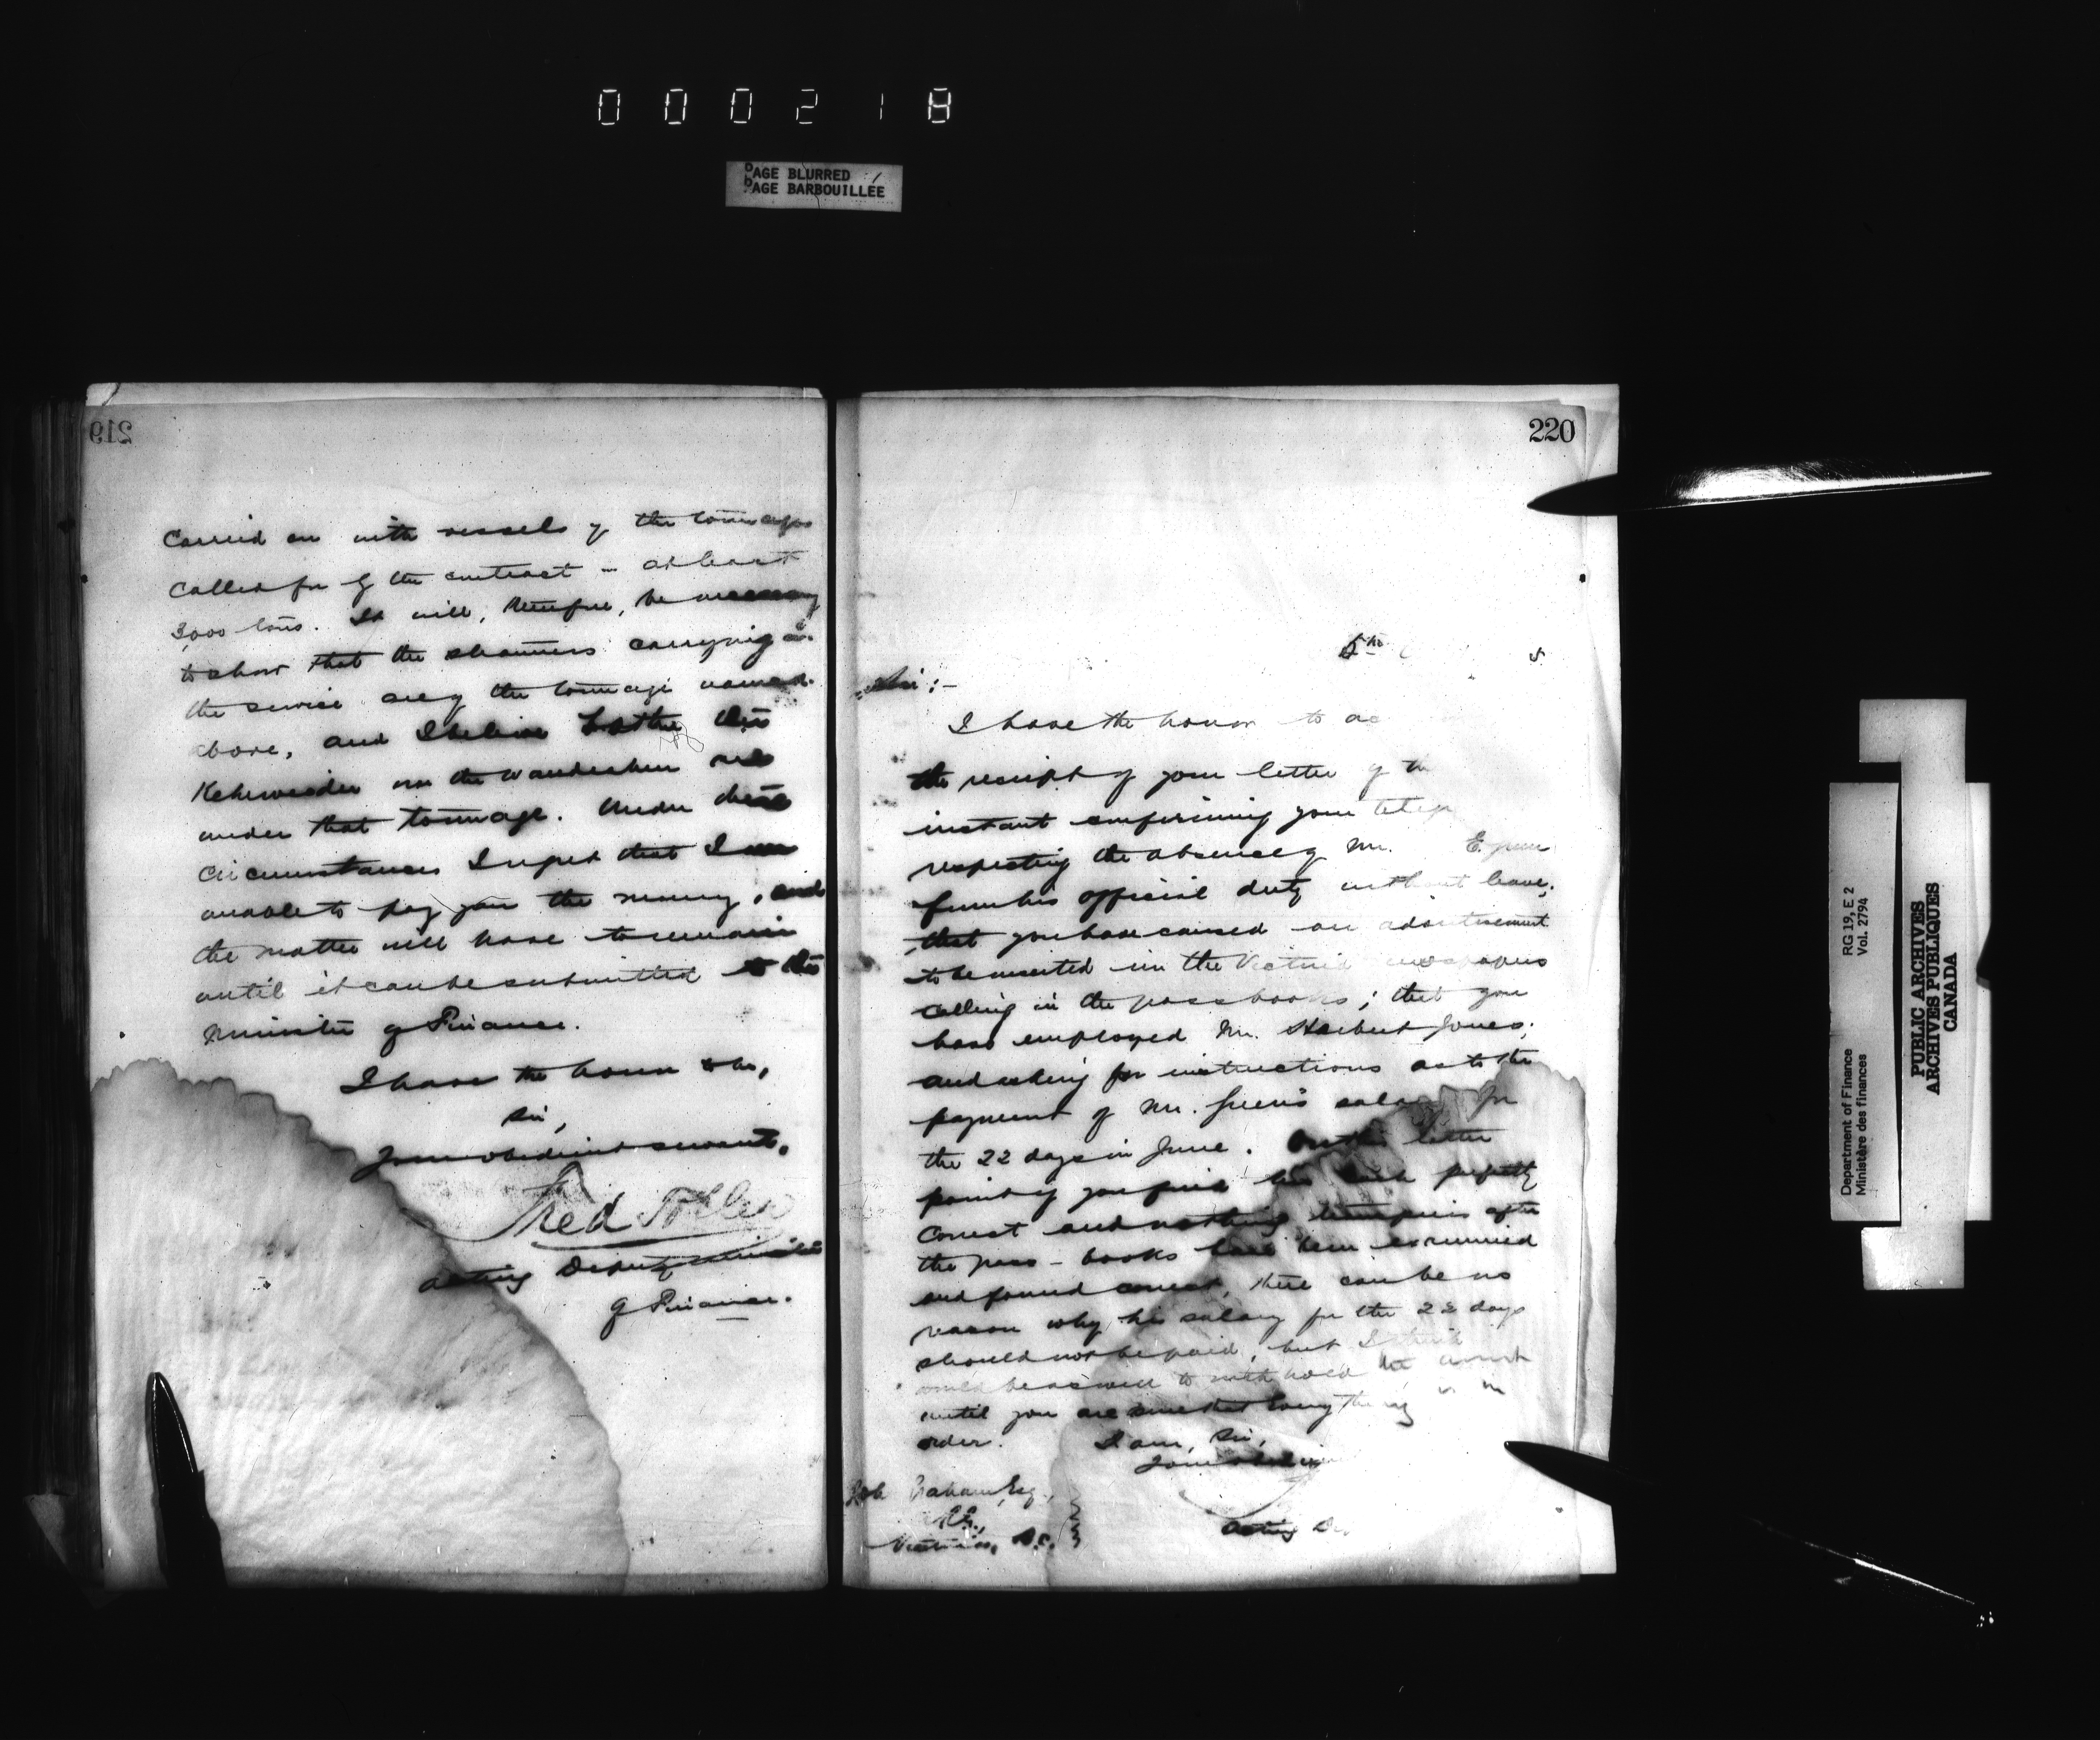 000218
PAGE BLURRED
PAGE BARBOUILLÉE
219
carried on with vessels of the tonnage
called for by the contract - at least
3,000 tons. It will, therefore, be necessary
to show that the steamers carrying on
the service are of the tonnage named
above, and I believe both the
on the Wandrahm are
under that tonnage. Under these
circumstances I regret that I am
unable to pay you the money, and
the matter will have to remain
until it can be submitted to the
Minister of Finance.
I have the honor to be,
Sir,
Your obedient servant,
Fred Toller
Acting Deputy Minister
of Finance.
220
5th
Sir:-
I have the honor to ac
the receipt of your letter of th
instant confirming your teleg
respecting the absence of Mr. E. Green
from his official duty without leave;
that you have caused an advertisement
to be inserted in the Victoria newspapers
calling in the pass books; that you
have employed Mr. Herbert Jones;
and asking for instructions as to the
payment of Mr. Green's salary for
the 22 days in June. On the latter
point if you find his cash perfectly
correct and nothing transpires after
the pass-books have been examined
and found correct, there can be no
reason why his salary for the 22 days
should not be paid, but I think
would be as well to withhold the
until you are sure that everything is in
order. I am, Sir,
Your
Graham Esq.,
Victoria, B.C.
Acting De
Department of Finance
Ministère des finances
RG 19, E 2
Vol. 2794
PUBLIC ARCHIVES
ARCHIVES PUBLIQUES
CANADA